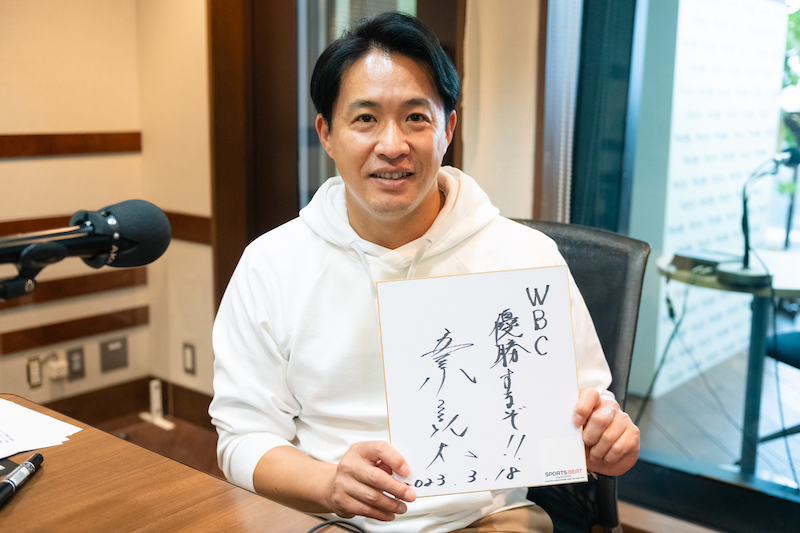 WBC
優勝するぞ!!
2023.3.18
SPORTS BEAT